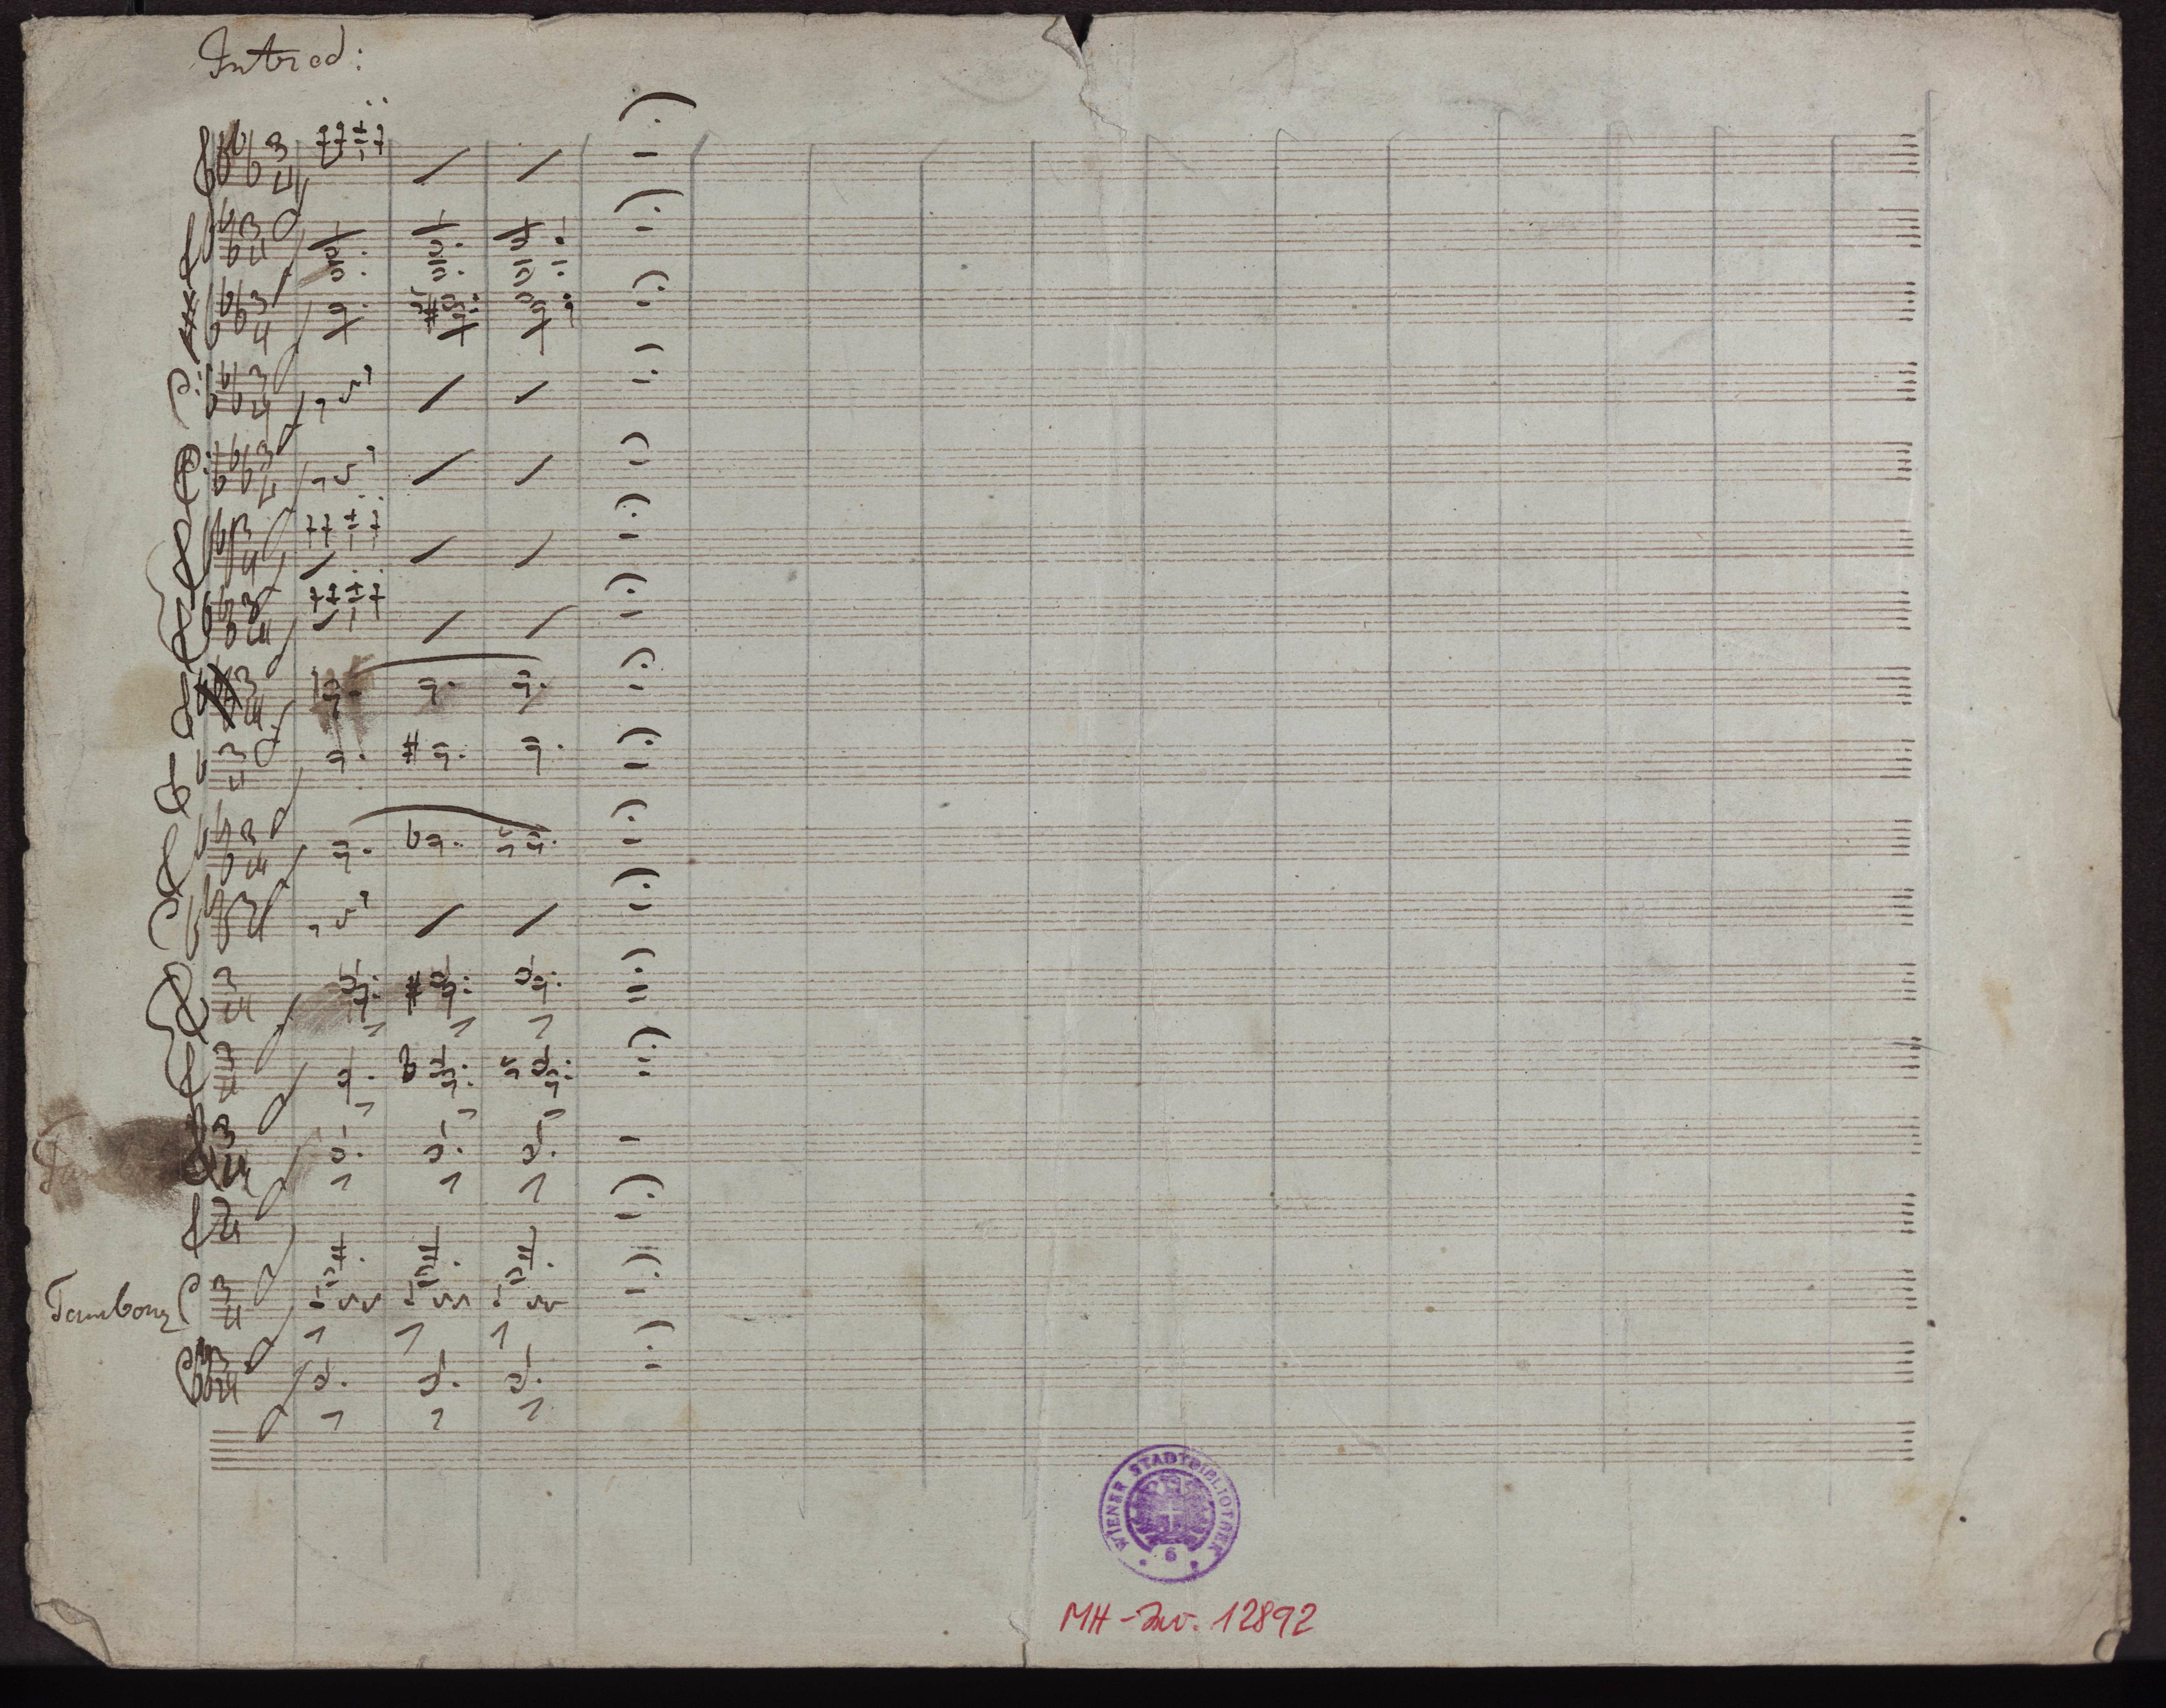 Introd:
Tambour
WIENER STADTBIBLIOTHEK
6
MH-Inv. 12892